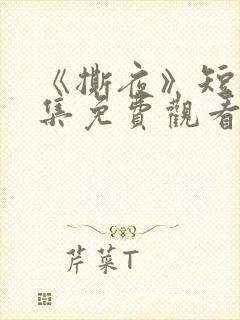 《撕夜》短
集免費觀看
芹菜T